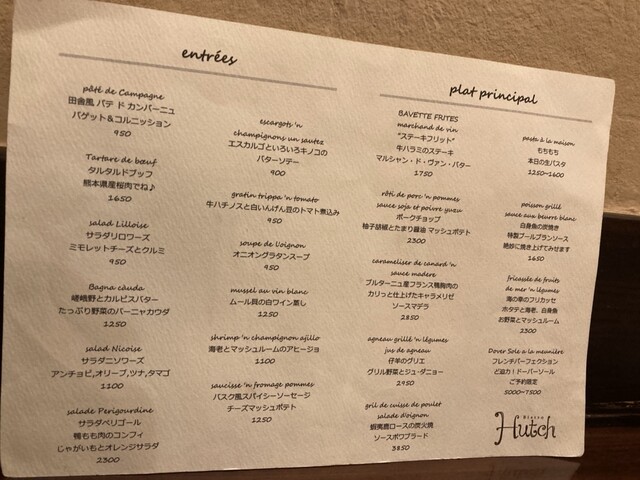 entrées
pâté de Campagne
田舎風 パテ ド カンパーニュ
バゲット＆コルニッション
950
Tartare de bœuf
タルタルドブッフ
熊本県産桜肉でね♪
1650
salad Lilloise
サラダリロワーズ
ミモレットチーズとクルミ
950
Bagna càuda
嵯峨野とカルピスバター
たっぷり野菜のバーニャカウダ
1250
salad Nicoise
サラダニソワーズ
アンチョビ,オリーブ,ツナ,タマゴ
1100
salade Perigourdine
サラダペリゴール
鴨もも肉のコンフィ
じゃがいもとオレンジサラダ
2300
escargots 'n
champignons un sautez
エスカルゴといろいろキノコの
バターソテー
900
gratin trippa 'n tomato
牛ハチノスと白いんげん豆のトマト煮込み
950
soupe de l'oignon
オニオングラタンスープ
950
mussel au vin blanc
ムール貝の白ワイン蒸し
1250
shrimp 'n champignon ajillo
海老とマッシュルームのアヒージョ
1100
saucisse 'n fromage pommes
バスク風スパイシーソーセージ
チーズマッシュポテト
1250
plat principal
BAVETTE FRITES
marchand de vin
"ステーキフリット"
牛ハラミのステーキ
マルシャン・ド・ヴァン・バター
1750
rôti de porc 'n pommes
sauce soja et poivre yuzu
ポークチョップ
柚子胡椒とたまり醤油 マッシュポテト
2300
carameliser de canard 'n
sauce madere
ブルターニュ産フランス鴨胸肉の
カリッと仕上げたキャラメリゼ
ソースマデラ
2850
agneau grillé 'n légumes
jus de agneau
仔羊のグリエ
グリル野菜とジュ・ダニョー
2950
gril de cuisse de poulet
salade d'oignon
蝦夷鹿ロースの炭火焼
ソースポワブラード
3850
pasta à la maison
もちもち
本日の生パスタ
1250~1600
poisson grillé
sauce au beurre blanc
白身魚の炭焼き
特製ブールブランソース
絶妙に焼き上げてみせます
1650
fricassée de fruits
de mer 'n légumes
海の幸のフリカッセ
ホタテと海老、白身魚
お野菜とマッシュルーム
2300
Dover Sole a la meanière
フレンチパーフェクション
ど迫力！ドーバーソール
ご予約限定
5000~7500
Bistro
Hutch